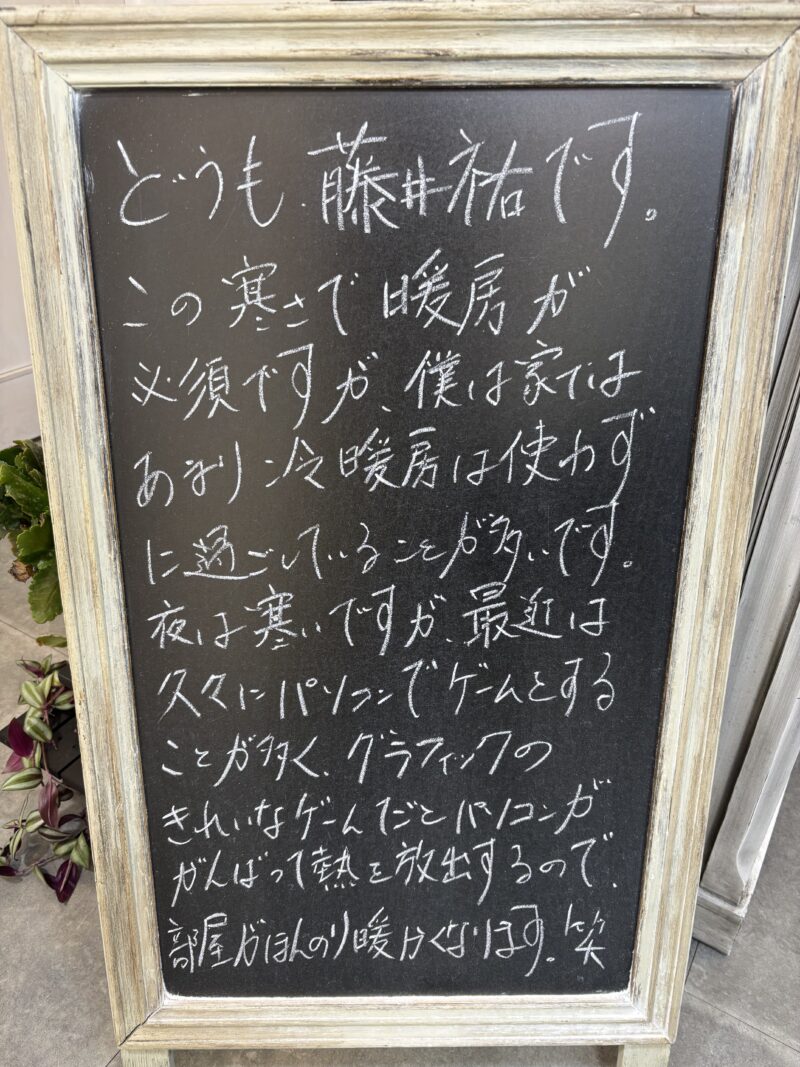 どうも、藤井祐です。
この寒さで暖房が
必須ですが、僕は家では
あまり冷暖房は使わず
に過ごしていることが多いです。
夜は寒いですが、最近は
久々にパソコンでゲームをする
ことが多く、グラフィックの
きれいなゲームだとパソコンが
がんばって熱を放出するので、
部屋がほんのり暖かくなります。笑